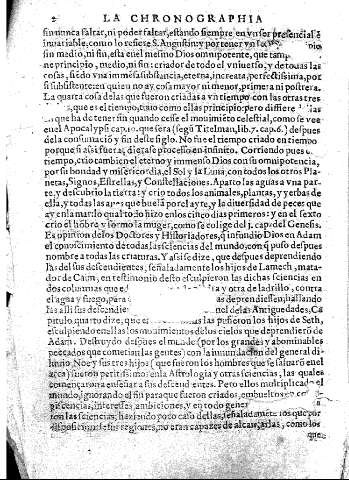 2 LA CHRONOGRAPHIA
sin nunca faltar, ni poder faltar, estando siempre en vn ser presencial è
inuariable, como lo refiere S. Augustin: y por tener vn
medio, ni sin, esta en el mesmo Dios omnipotente, que tam
ne principio, medio, ni fin: criador de todo el vniuerso, y de todas las
cosas, siendo vna immensa substancia, eterna, increata, perfectissima, por
si subsistente: en quien no ay cosa mayor ni menor, primera ni postrera.
La quarta cosa de las que fueron criadas a vn tiempo con las otras tres
, que es el tiempo, tuuo como ellas principio: pero differe
que ha de tener fin quando cesse el mouimiẽto celestial, como se ve
en el Apocalypsi cap. 10. que sera (segũ Titelman, lib. 7. cap. 6.) despues
de la consumació y fin deste siglo. No fue el tiempo criado en tiempo
porque si assi fuera, dierase processo en infinito. Corriendo pues
tiempo, crio tambien el eterno y immenso Dios con su omnipotencia,
por su bondad y misericordia, el Sol y la Luna, con todos los otros Planetas,
Signos, Estrellas, y Constellaciones. Aparto las aguas a vna parte,
y descubrio la tierra: y crio todos los animales, plantas, y yerbas de
ella, y todas las aues que buelã por el ayre, y la diuersidad de peces que
ay en la mar: lo qual todo hizo en los cinco dias primeros: y en el sexto
crio el hõbre y formo la muger, como se colige del 1. cap. del Genesis.
Es opinion de los Doctores y Historiadores, q̃ infundio Dios en Adam
el conoscimiento de todas las sciencias del mundo, con q̃ puso despues
nombre a todas las criaturas. Y assi se dize, que despues deprendiendo
las del sus descendientes, señaladamente los hijos de Lamech, matador
de Cain, en testimonio desto esculpieron las dichas sciencias en
dos columnas que e y otra de ladrillo, contra
el agua y fuego, para as deprendiessen, hallando
las assi sus descendie nel de las Antiguedades, Ca
pitulo quarto dize, que estas columnas las hizieron los hijos de Seth,
esculpiendo en ellas los mouimientos de los cielos que deprendierõ de
Adam. Destruydo despues el mundo (por los grandes y abominables
peccados que cometian las gentes) con la inundacion del general diluuio,
Noe y sus tres hijos (que fueron los hombres que se saluarõ en el
arca) fueron peritissimos en la Astrologia y otras sciencias, las quales
començaron a enseñar a sus descendientes. Pero ellos multiplicado el
mundo, ignorando el fin para que fueron criados, embueltos y
gicencias, interesses, ambiciones, y en todo gener
ron las sciencias, haziendo poco caso dellas, señaladamẽte los que por
no eran capazes de alcançarlas, como los
que